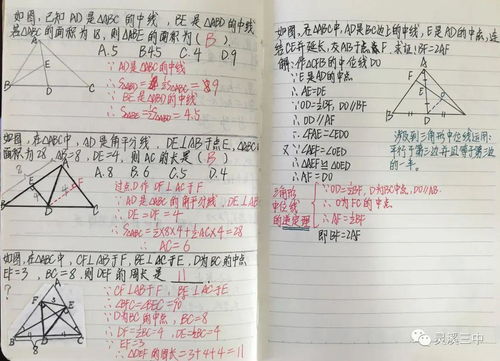 如图,已知 AD 是△ABC 的中线, BE 是△ABD 的中线
若△ABC 的面积为 18, 则△ABE 的面积为 ( B )
A.5 B.4.5 C.4 D.9
∵ AD是△ABC的中线
∴ S△ABD = ½S△ABC = 9
∵ BE是△ABD的中线
∴ S△ABE = ½S△ABD = 4.5
A
E
B D C
如图, 在△ABC中, AD是角平分线, DE⊥AB于点E, △ABC的
面积为 28, AB=8, DE=4, 则AC的长是 ( B )
A.8 B.6 C.5 D.4
过点D作 DF⊥AC于F
∵ AD是△ABC的角平分线, DE⊥AB
∴ DE=DF=4
∴ S△ABC = ½×8×4+½AC×4=28
∴ AC=6
A
8
E F
4 4
B D C
如图, 在△ABC中, CF⊥AB于F, BE⊥AC于E, D为BC的中点
EF=3, BC=8, 则△DEF的周长是 11
?
∵ CF⊥AB于F, BE⊥AC于E
∴ ∠BFC=∠BEC=90°
∵ D为BC的中点, BC=8
∴ DF=½BC=4, DE=½BC=4
∵ EF=3
∴ △DEF的周长=3+4+4=11
A
F E
B D C
如图, 在△ABC中, AD是BC边上的中线, E是AD的中点, 连
结CE并延长, 交AB于点F, 求证: BF=2AF
解: 作△CFB的中位线DO
∵ E是AD的中点
∴ AE=DE
∵ OD=½BF, DO∥BF
∴ DO∥AF
∴ ∠FAE=∠EDO
又∵ ∠AEF=∠DEO
∴ △AEF≌△DEO
∴ AF=DO
A
F E O
B D C
涉及到三角形中位线运用:
平行于第三边并且等于第三边
的一半。
三角形
中位线
的逆定理
∵ OD=½BF, D为BC中点, DO∥AB
∴ O为FC的中点
∴ AF=½BF
即BF=2AF
灵溪三中